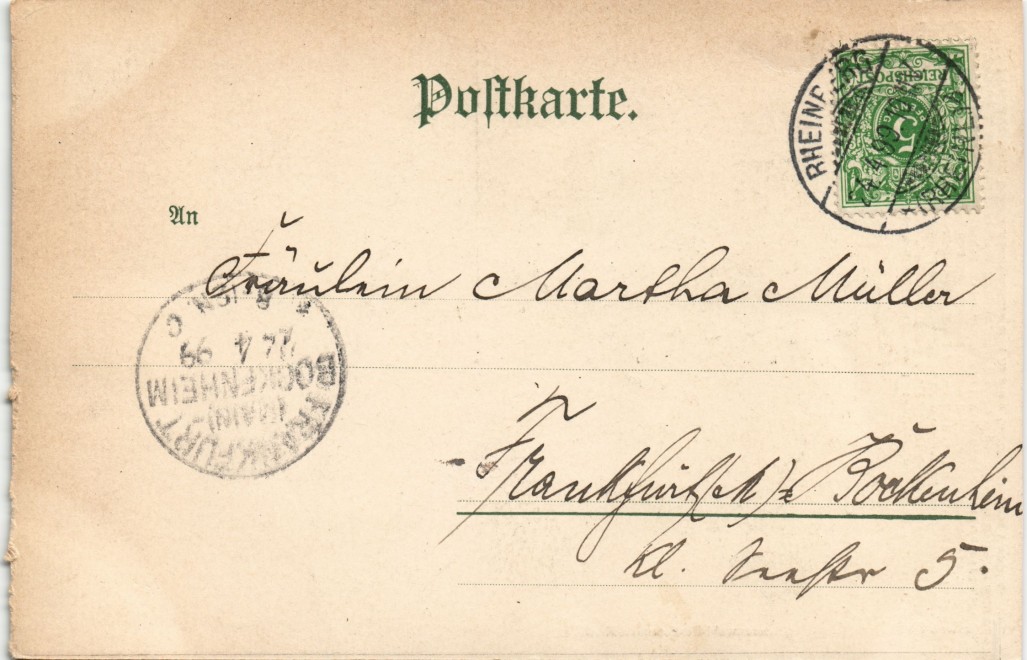 Postkarte.
REICHSPOST
5
24.4.99
An
Fräulein Martha Müller
FRANKFURT
(MAIN)-
BOCKENHEIM
24 4 99
Frankfurt (M) = Bockenheim
kl. Seestr 5.